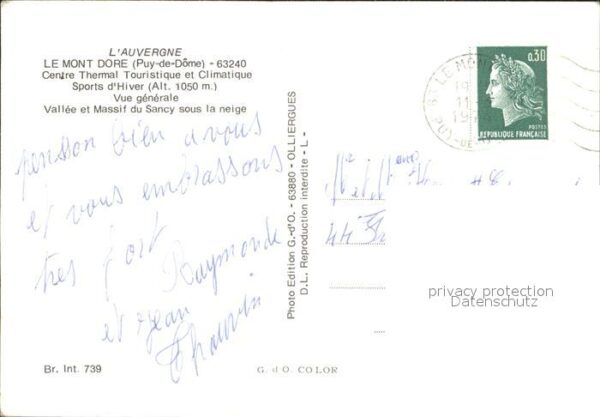 L'AUVERGNE
LE MONT DORE (Puy-de-Dôme) - 63240
Centre Thermal Touristique et Climatique
Sports d'Hiver (Alt. 1050 m.)
Vue générale
Vallée et Massif du Sancy sous la neige
pensons bien à vous
et vous embrassons
tres fort
Raymonde
et Jean
Br. Int. 739
Photo Edition G.-d'O. - 63880 - OLLIERGUES
D.L. Reproduction interdite - L -
G. d O. COLOR
LE MON
0,30
POSTES
REPUBLIQUE FRANÇAISE
et
44
privacy protection
Datenschutz